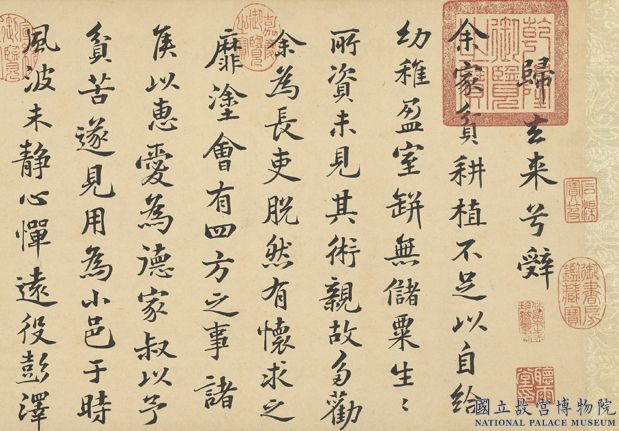 歸去来兮辭
余家貧耕植不足以自給
幼稚盈室缾無儲粟生〻
所資未見其術親故多勸
余為長吏脫然有懷求之
靡塗會有四方之事諸
侯以惠愛為德家叔以予
貧苦遂見用為小邑于時
風波未静心憚遠役彭澤
乾隆御覽之寶
嘉慶御覽之寶
石渠寶笈
御書房鑑藏寶
國立故宮博物院
NATIONAL PALACE MUSEUM